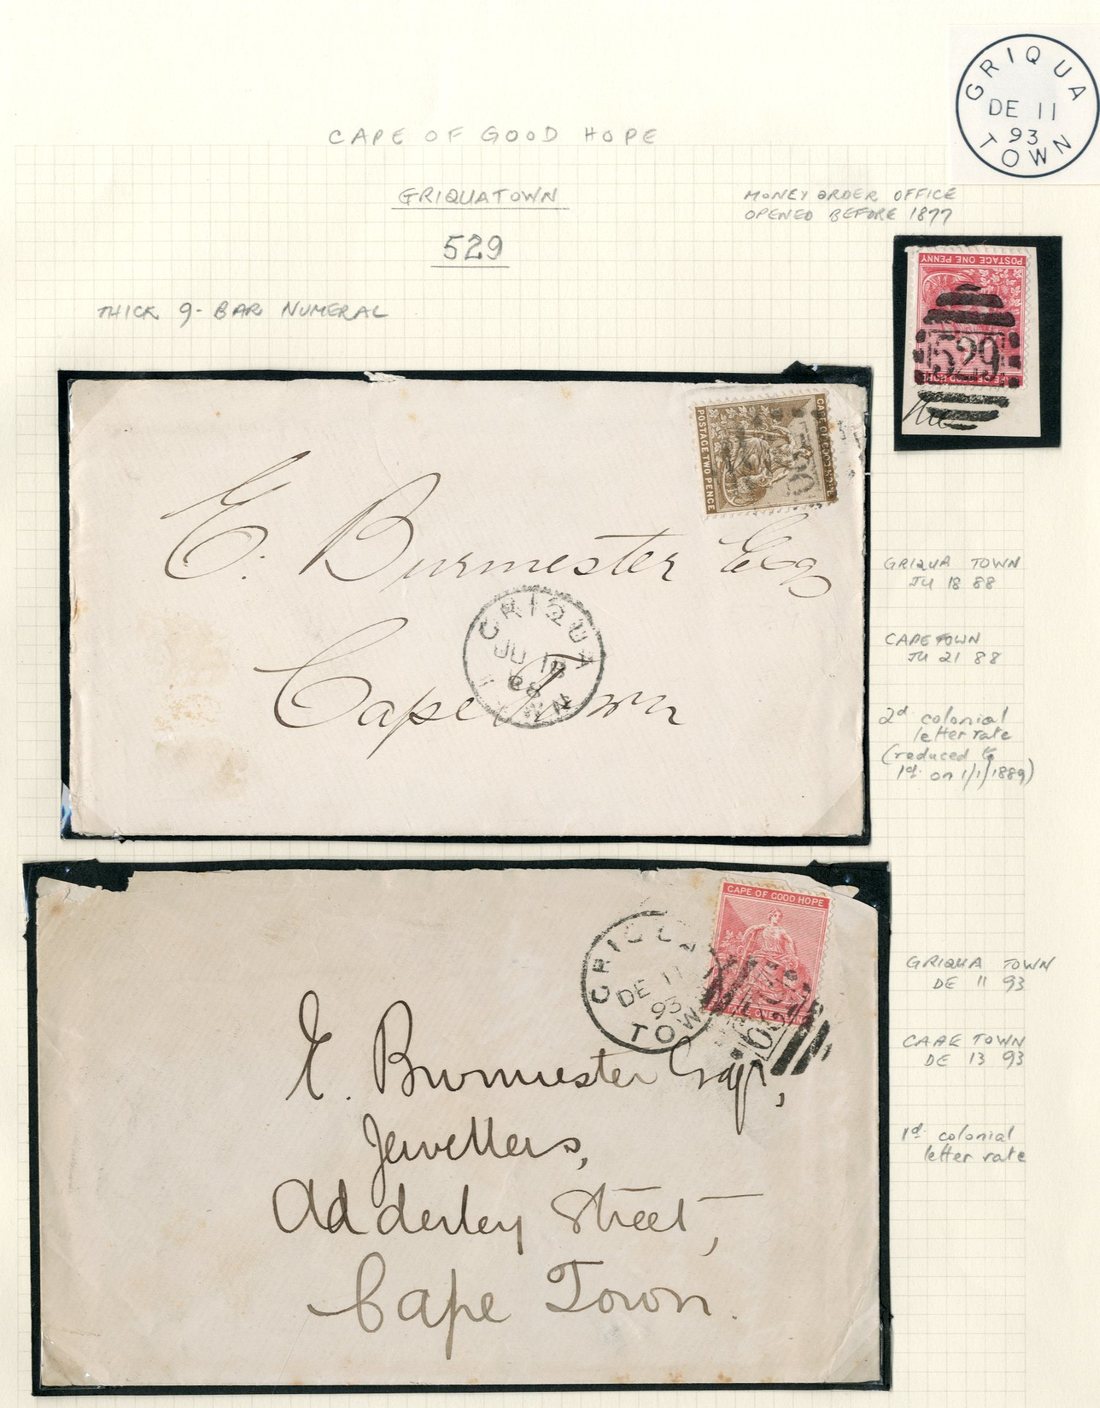 GRIQUA
DE 11
93
TOWN
CAPE OF GOOD HOPE
GRIQUATOWN
529
MONEY ORDER OFFICE
OPENED BEFORE 1877
THICK 9-BAR NUMERAL
POSTAGE ONE PENNY
529
POSTAGE TWO PENCE
E. Burmester Esq
Cape Town
GRIQUA
JU 18
88
GRIQUA TOWN
JU 18 88
CAPE TOWN
JU 21 88
2d colonial
letter rate
(reduced to
1d. on 1/1/1889)
CAPE OF GOOD HOPE
DE 11
93
TOWN
E. Burmester Esqr,
Jewellers,
Adderley Street,
Cape Town.
GRIQUA TOWN
DE 11 93
CAPE TOWN
DE 13 93
1d. colonial
letter rate